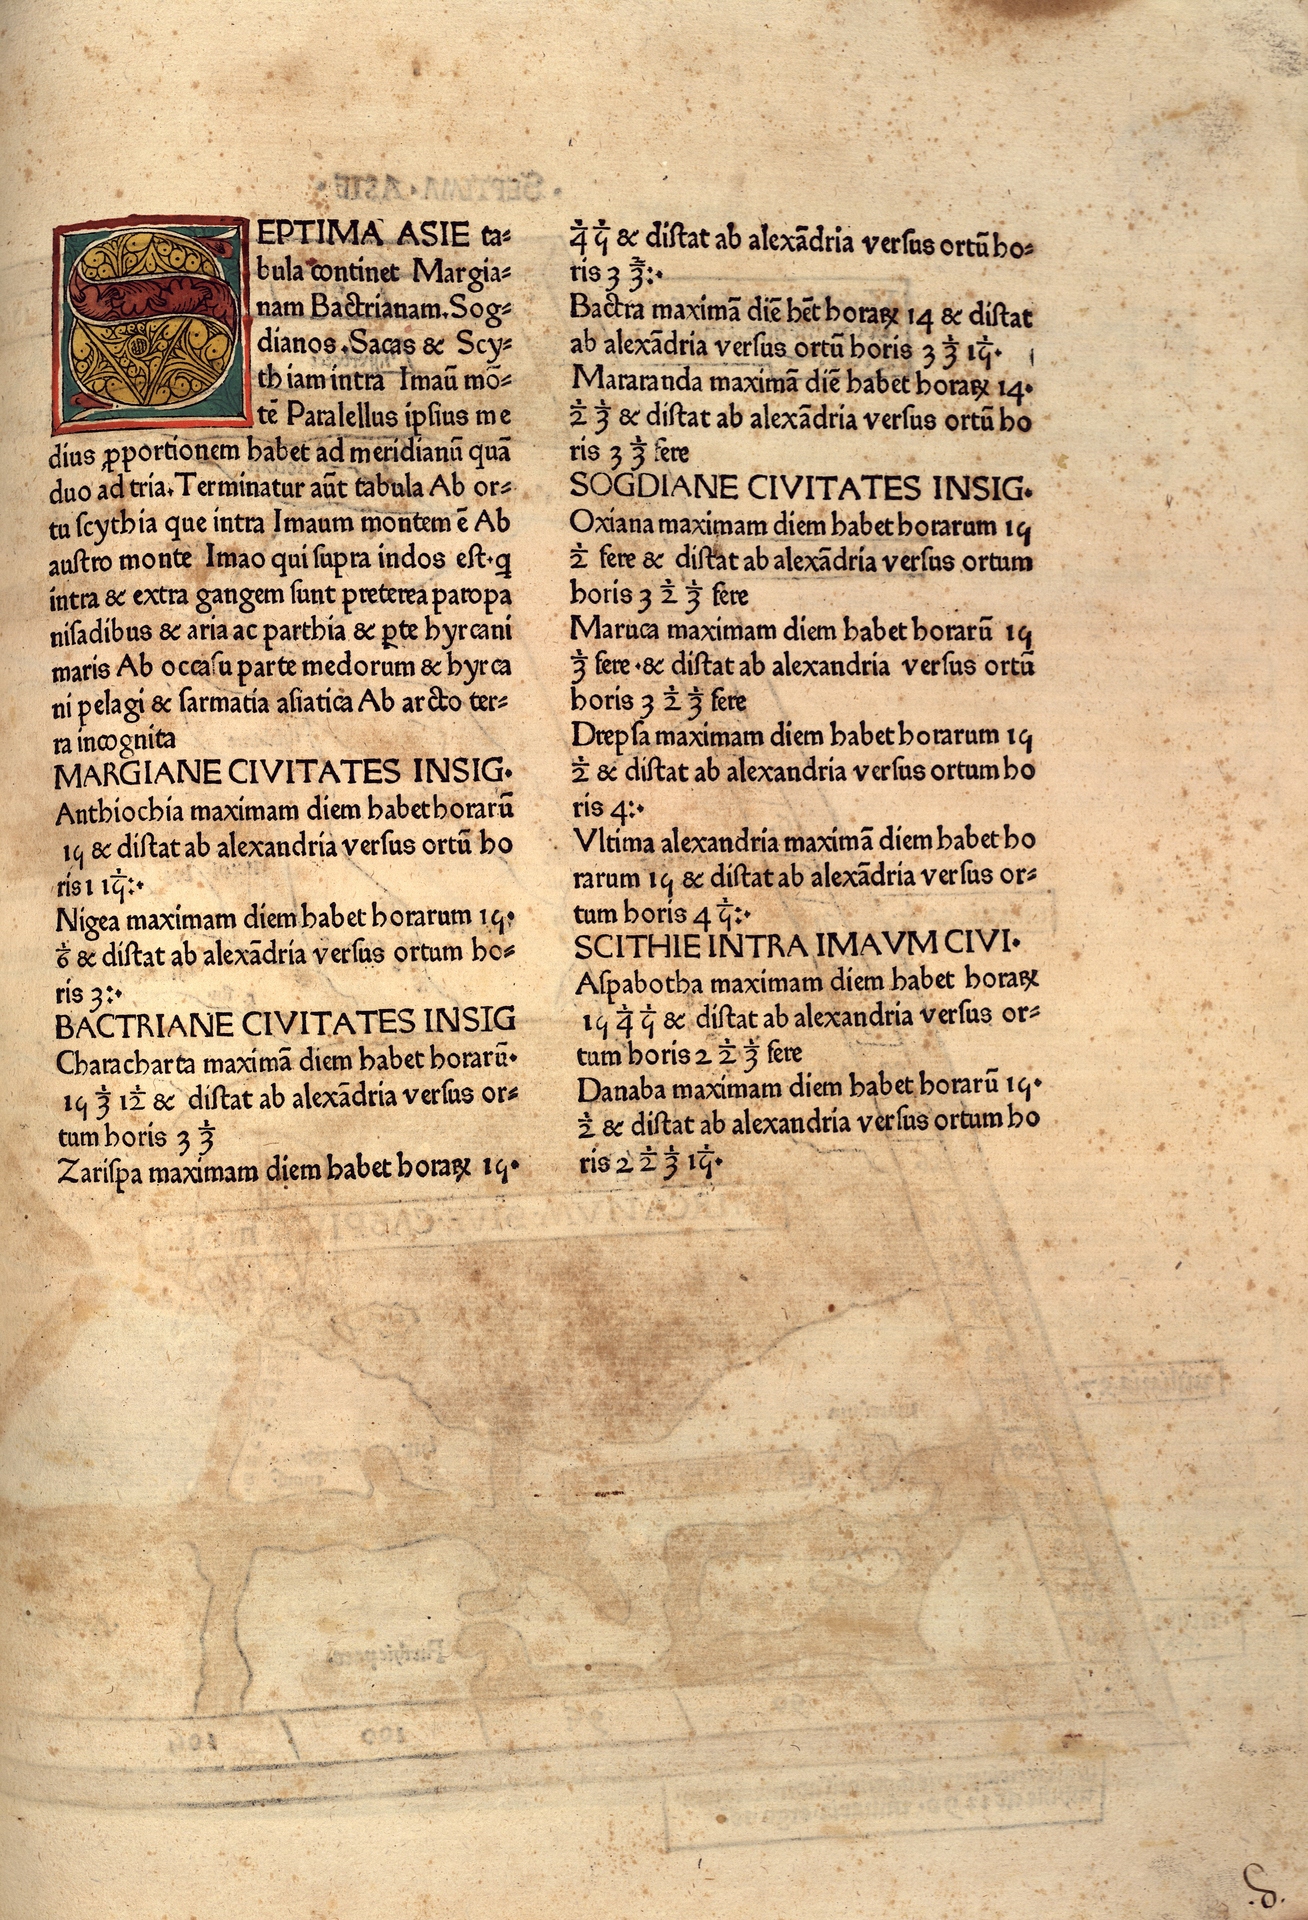 SEPTIMA ASIE ta⸗
bula continet Margia⸗
nam Bactrianam.Sog⸗
dianos.Sacas & Scy⸗
thiam intra Imaū mō⸗
tē Paralellus ipſius me
dius ꝓportionem habet ad meridianū quā
duo ad tria.Terminatur aūt tabula Ab or⸗
tu ſcythia que intra Imaum montem ē Ab
auſtro monte Imao qui ſupra indos est.q̄
intra & extra gangem ſunt preterea paropa
niſadibus & aria ac parthia & ꝑte hyrcani
maris Ab occaſu parte medorum & hyrca
ni pelagi & ſarmatia aſiatica Ab arcto ter⸗
ra incognita
MARGIANE CIVITATES INSIG.
Anthiochia maximam diem habet horarū
15 & diſtat ab alexandria verſus ortū ho
ris 1 1/15:.
Nigea maximam diem habet horarum 15.
1/6 & diſtat ab alexādria verſus ortum ho⸗
ris 3:.
BACTRIANE CIVITATES INSIG
Characharta maximā diem habet horarū.
15 1/3 1/12 & diſtat ab alexādria verſus or⸗
tum horis 3 1/3
Zariſpa maximam diem habet horaꝝ 15.
1/4 1/5 & diſtat ab alexādria verſus ortū ho⸗
ris 3 2/3:.
Bactra maximā diē hēt horaꝝ 14 & diſtat
ab alexādria verſus ortū horis 3 1/3 1/15.
Mararanda maximā diē habet horaꝝ 14.
1/2 1/3 & diſtat ab alexādria verſus ortū ho
ris 3 1/3 fere
SOGDIANE CIVITATES INSIG.
Oxiana maximam diem habet horarum 15
1/2 fere & diſtat ab alexādria verſus ortum
horis 3 1/2 1/3 fere
Maruca maximam diem habet horarū 15
1/3 fere.& diſtat ab alexandria verſus ortū
horis 3 1/2 1/3 fere
Drepſa maximam diem habet horarum 15
1/2 & diſtat ab alexandria verſus ortum ho
ris 4:.
Vltima alexandria maximā diem habet ho
rarum 15 & diſtat ab alexādria verſus or⸗
tum horis 4 1/5:.
SCITHIE INTRA IMAVM CIVI.
Aſpabotha maximam diem habet horaꝝ
15 1/4 1/5 & diſtat ab alexandria verſus or⸗
tum horis 2 1/2 1/3 fere
Danaba maximam diem habet horarū 15.
1/2 & diſtat ab alexandria verſus ortum ho
ris 2 1/2 1/3 1/15.